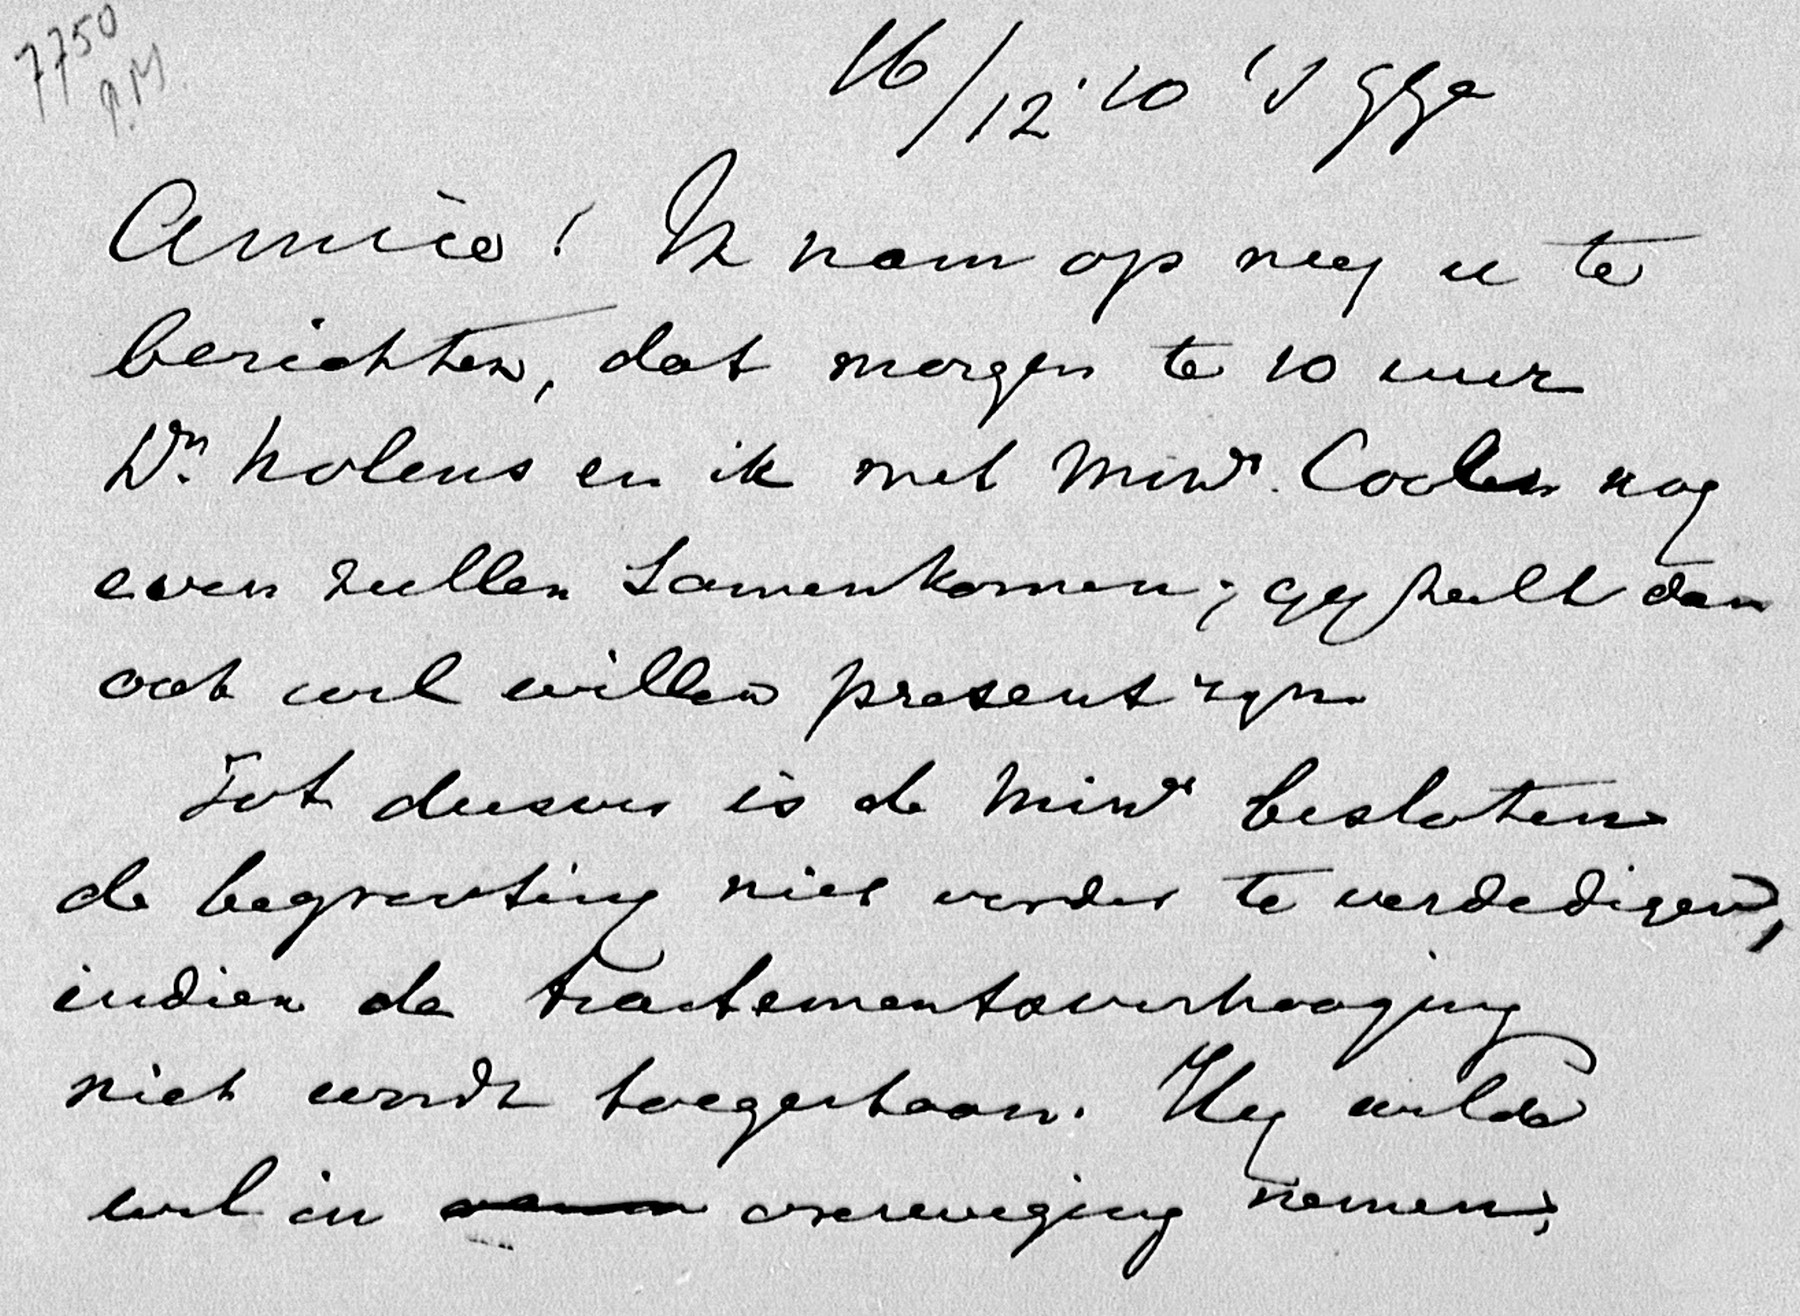 7750
P.M.
16/12 '10 's Gge
Amice! Ik nam op mij u te
berichten, dat morgen te 10 uur
Dr. Nolens en ik met Minr. Colen nog
even zullen samenkomen; gij zult dan
ook wel willen present zijn.
Tot dusver is de Minr besloten
de begrooting niet verder te verdedigen,
indien de tractementsverhooging
niet wordt toegestaan. Hij wilde
wel in overweging nemen,